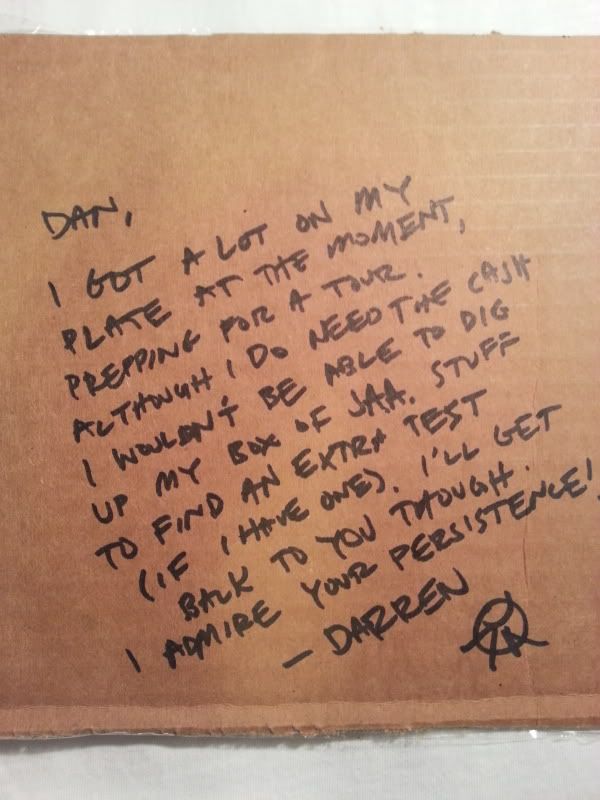 DAN,
I GOT A LOT ON MY
PLATE AT THE MOMENT,
PREPPING FOR A TOUR.
ALTHOUGH I DO NEED THE CASH
I WOULDN'T BE ABLE TO DIG
UP MY BOX OF JAA. STUFF
TO FIND AN EXTRA TEST
(IF I HAVE ONE). I'LL GET
BACK TO YOU THOUGH.
I ADMIRE YOUR PERSISTENCE!
— DARREN